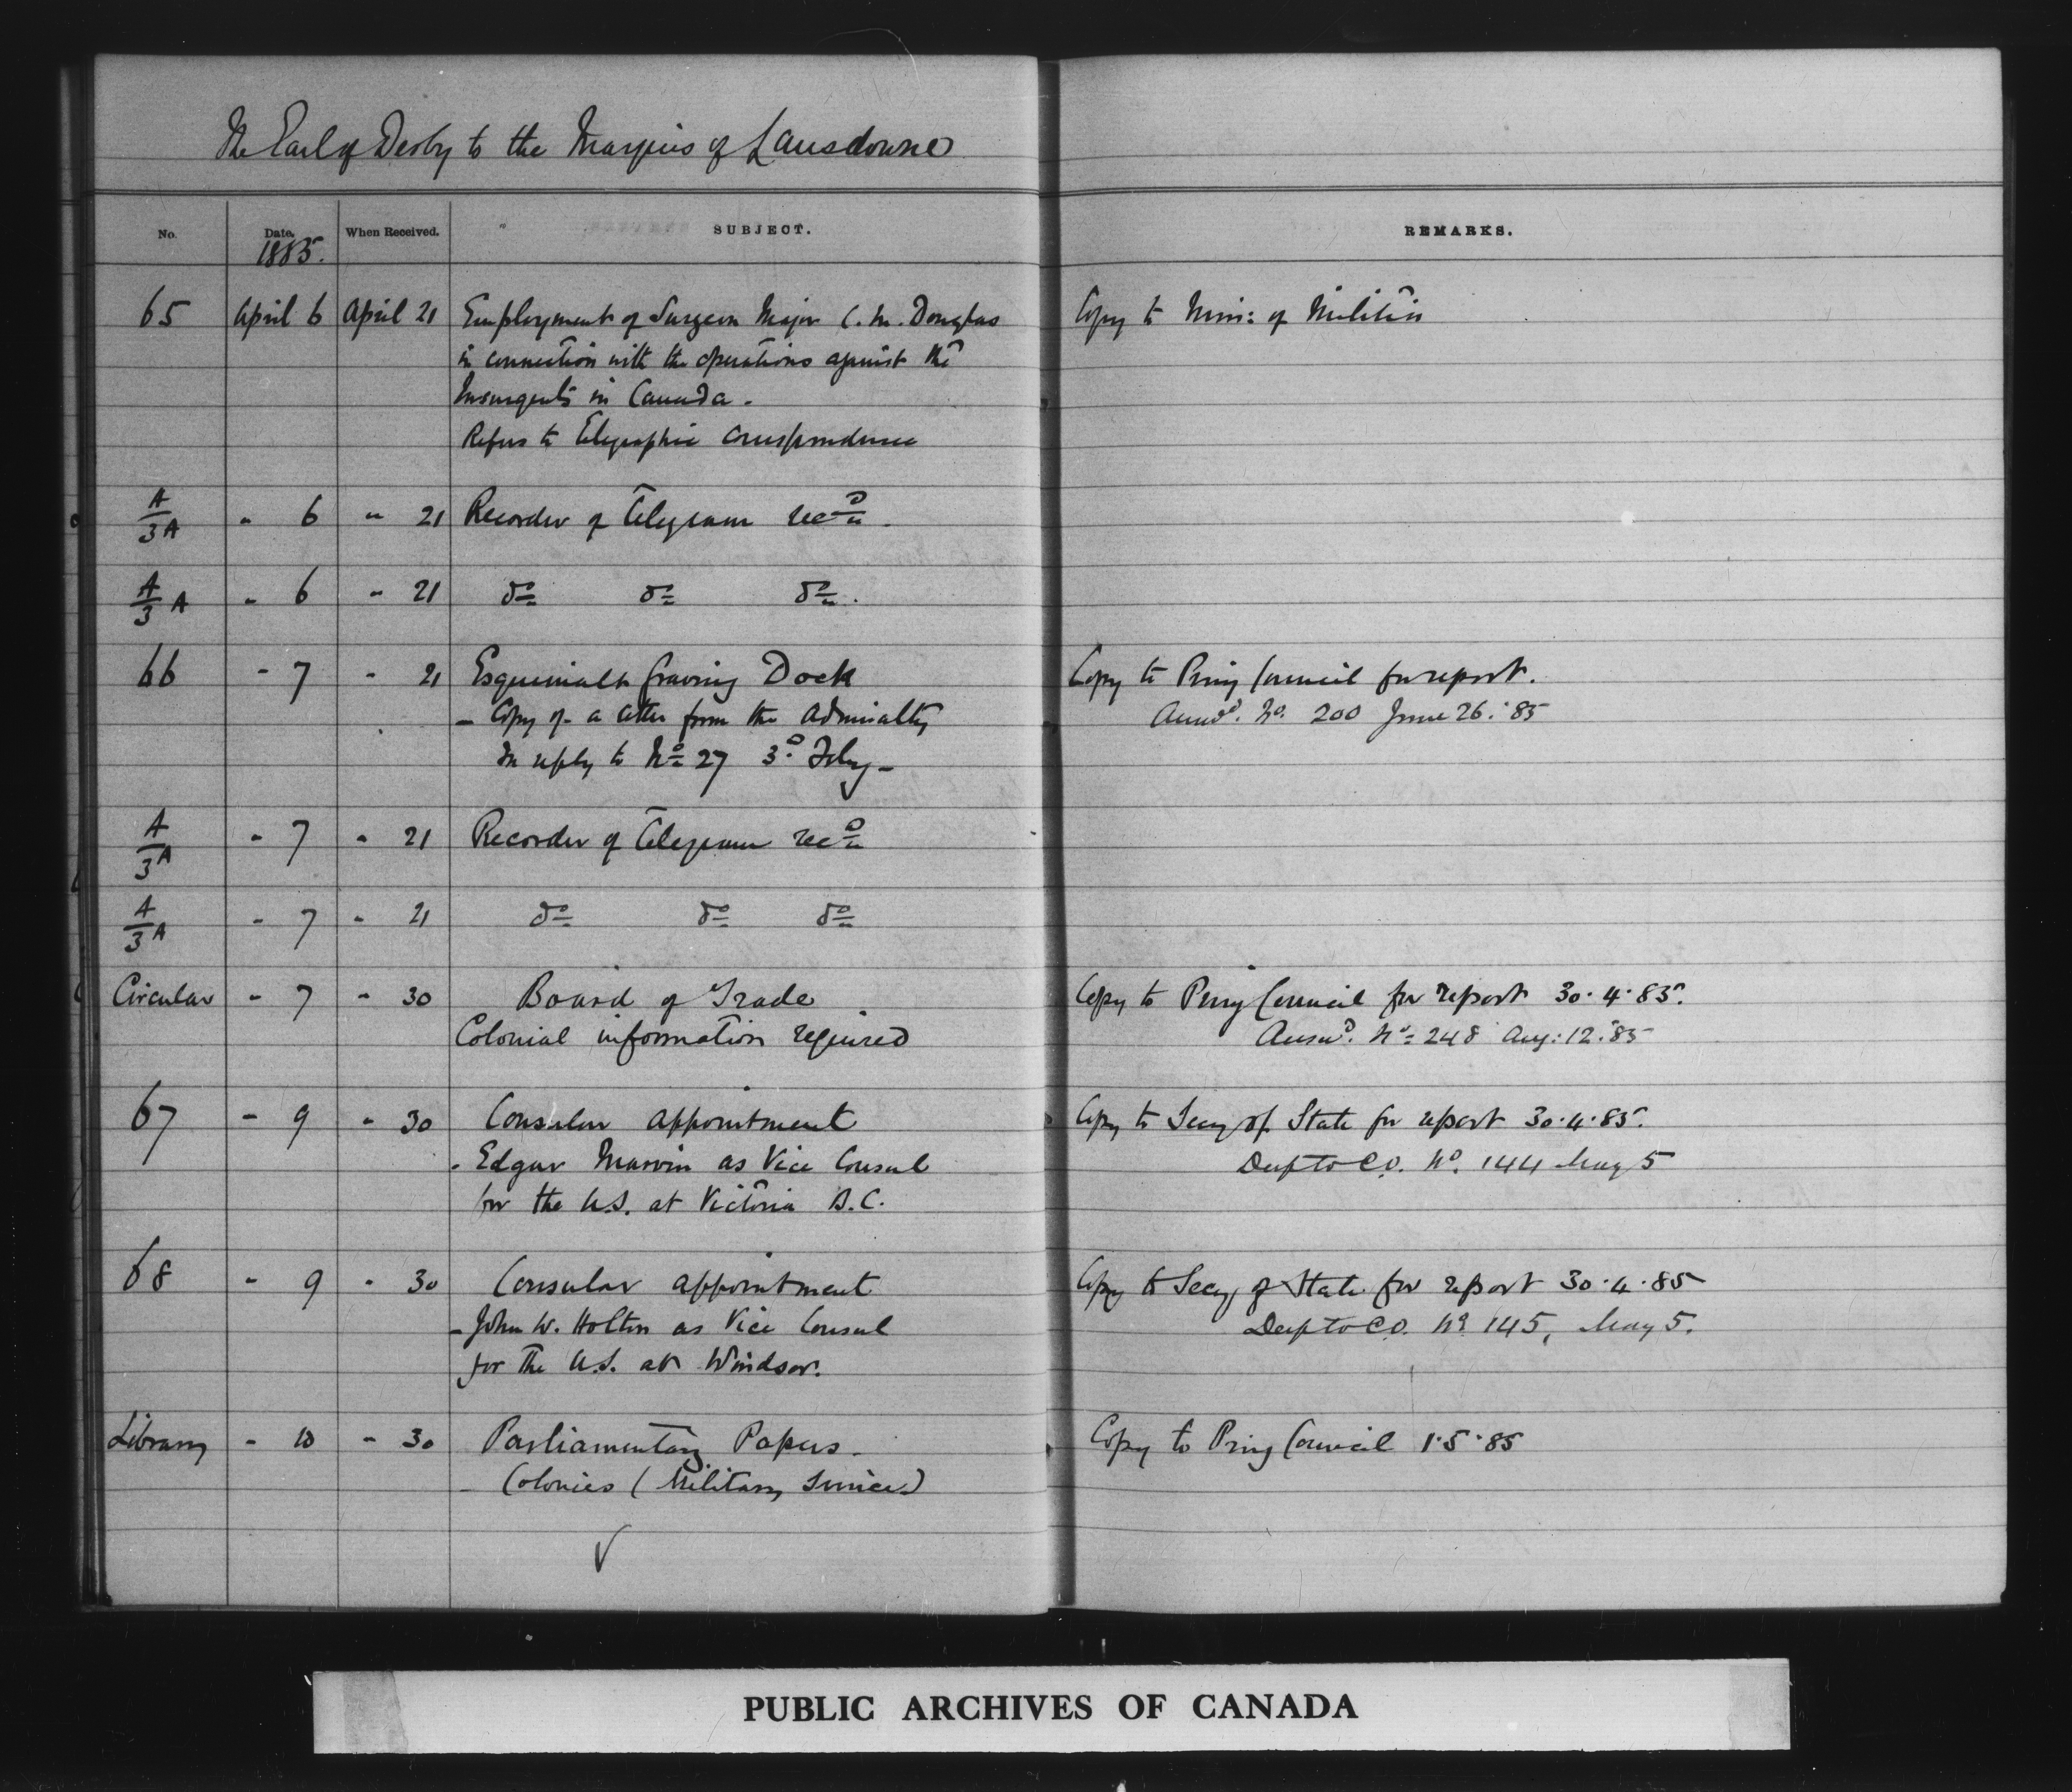 The Earl of Derby to the Marquis of Lansdowne
No. Date. When Received. SUBJECT. REMARKS.
1885.
65 April 6 April 21 Employment of Surgeon Major C. M. Douglas Copy to Min: of Militia
in connection with the operations against the
Insurgents in Canada.
Refers to telegraphic correspondence
A/3 A " 6 " 21 Recorder of telegram recd.
A/3 A " 6 " 21 do do do.
66 " 7 " 21 Esquimalt Graving Dock Copy to Privy Council for report.
- Copy of a letter from the Admiralty Answd. No. 200 June 26. '85
In reply to No 27 3d Feby -
A/3 A " 7 " 21 Recorder of telegram recd
A/3 A " 7 " 21 do do do
Circular " 7 " 30 Board of Trade Copy to Privy Council for report 30.4.85.
Colonial information required Answd. No 248 Aug: 12. '85
67 " 9 " 30 Consular appointment Copy to Secy of State for report 30.4.85.
- Edgar Marvin as Vice Consul Desp to C.O. No. 144 May 5
for the U.S. at Victoria B.C.
68 " 9 " 30 Consular appointment Copy to Secy of State for report 30.4.85
- John W. Holton as Vice Consul Desp to C.O. No 145, May 5.
for the U.S. at Windsor.
Library " 10 " 30 Parliamentary Papers - Copy to Privy Council 1.5.85
- Colonies (Military Service)
PUBLIC ARCHIVES OF CANADA